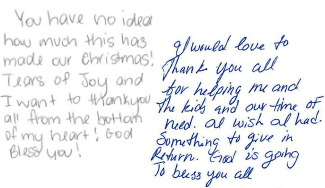 You have no idea
how much this has
made our Christmas!
Tears of Joy and
I want to thankyou
all from the bottom
of my heart! God
Bless you!
I would love to
Thank you all
for helping me and
The kids and our time of
need. I wish I had.
Something to give in
Return. God is going
To bless you all